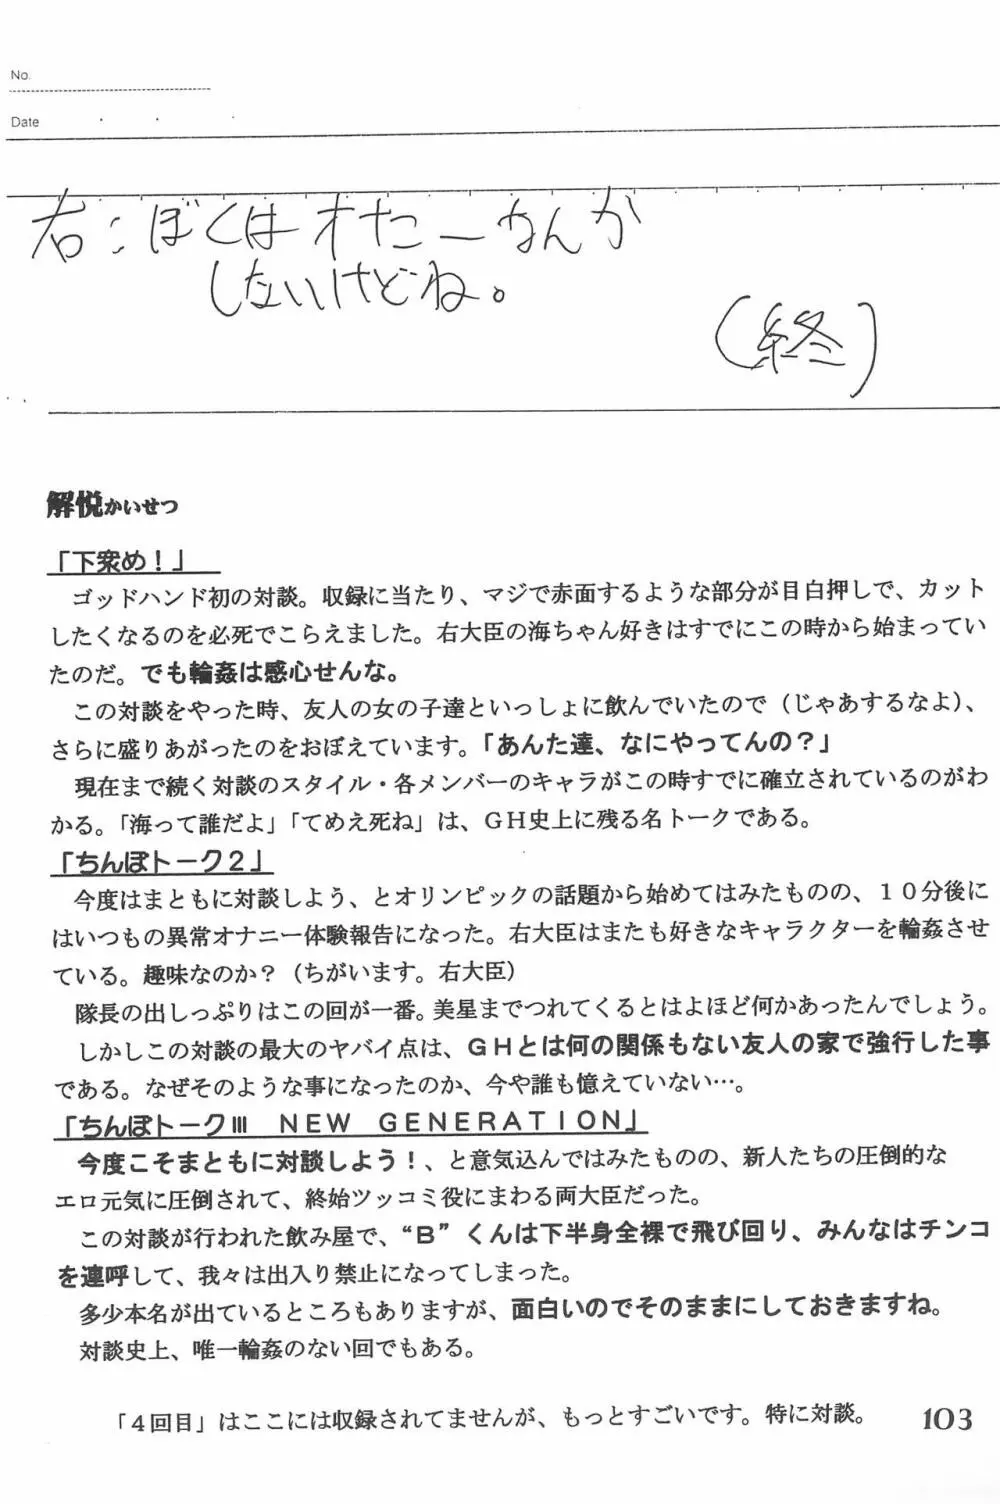 No.
Date
右:ぼくはオナニーなんか
しないけどね。
(終)
解悦かいせつ
「下衆め!」
ゴッドハンド初の対談。収録に当たり、マジで赤面するような部分が目白押しで、カット
したくなるのを必死でこらえました。右大臣の海ちゃん好きはすでにこの時から始まってい
たのだ。でも輪姦は感心せんな。
この対談をやった時、友人の女の子達といっしょに飲んでいたので(じゃあするなよ)、
さらに盛りあがったのをおぼえています。「あんた達、なにやってんの?」
現在まで続く対談のスタイル・各メンバーのキャラがこの時すでに確立されているのがわ
かる。「海って誰だよ」「てめえ死ね」は、GH史上に残る名トークである。
「ちんぽトーク2」
今度はまともに対談しよう、とオリンピックの話題から始めてはみたものの、10分後に
はいつもの異常オナニー体験報告になった。右大臣はまたも好きなキャラクターを輪姦させ
ている。趣味なのか?(ちがいます。右大臣)
隊長の出しっぷりはこの回が一番。美星までつれてくるとはよほど何かあったんでしょう。
しかしこの対談の最大のヤバイ点は、GHとは何の関係もない友人の家で強行した事
である。なぜそのような事になったのか、今や誰も憶えていない…。
「ちんぽトークⅢ NEW GENERATION」
今度こそまともに対談しよう!、と意気込んではみたものの、新人たちの圧倒的な
エロ元気に圧倒されて、終始ツッコミ役にまわる両大臣だった。
この対談が行われた飲み屋で、“B”くんは下半身全裸で飛び回り、みんなはチンコ
を連呼して、我々は出入り禁止になってしまった。
多少本名が出ているところもありますが、面白いのでそのままにしておきますね。
対談史上、唯一輪姦のない回でもある。
「4回目」はここには収録されてませんが、もっとすごいです。特に対談。
103